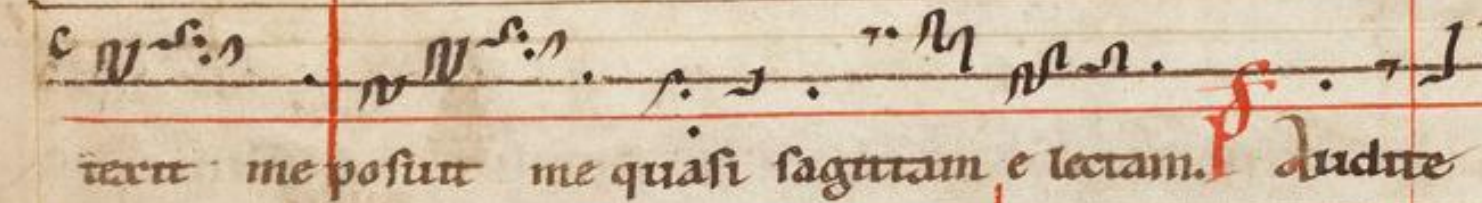 c
texit me posuit me quasi sagittam e lectam. Ps Audite